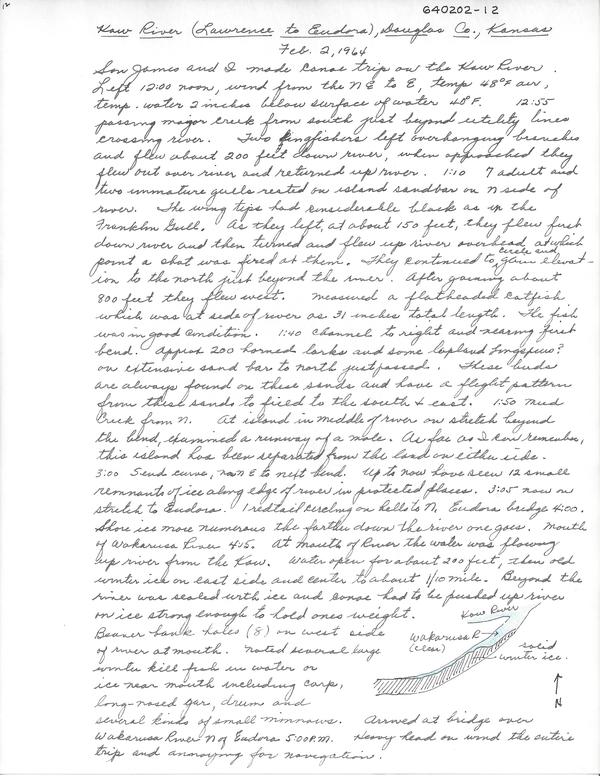 640202-12
Kaw River (Lawrence to Eudora), Douglas Co., Kansas
Feb. 2, 1964
Son James and I made canoe trip on the Kaw River.
Left 12:00 noon, wind from the NE to E, temp 48°F air,
temp. water 2 inches below surface of water 48°F. 12:55
passing major creek from south just beyond utility lines
crossing river. Two Kingfishers left overhanging branches
and flew about 200 feet down river, when approached they
flew out over river and returned up river. 1:10 7 adult and
two immature gulls rested on island sandbar on N side of
river. The wing tips had considerable black as in the
Franklin Gull. As they left, at about 150 feet, they flew first
down river and then turned and flew up river overhead, at which
point a shot was fired at them. They continued to circle and gain elevat-
ion to the north just beyond the river. After gaining about
800 feet they flew west. Measured a flatheaded catfish
which was at side of river as 31 inches total length. The fish
was in good condition. 1:40 channel to right and nearing first
bend. Approx 200 horned larks and some lapland longspurs?
on extensive sand bar to north just passed. These birds
are always found on these sands and have a flight pattern
from these sands to field to the south & east. 1:50 Mud
Creek from N. At island in middle of river on stretch beyond
the bend, examined a runway of a mole. As far as I can remember,
this island has been separated from the land on either side.
3:00 Send curve, now NE to next bend. Up to now have seen 12 small
remnants of ice along edge of river in protected places. 3:05 now on
stretch to Eudora. 1 redtail circling on hills to N. Eudora bridge 4:00.
Shore ice more numerous the farther down the river one goes. Mouth
of Wakarusa River 4:15. At mouth of River the water was flowing
up river from the Kaw. Water open for about 200 feet, then old
winter ice on east side and center to about 1/10 mile. Beyond the
river was sealed with ice and canoe had to be pushed up river
on ice strong enough to hold ones weight.
Kaw River
Beaver bank holes (8) on west side
Wakarusa R
(clear)
of river at mouth. Noted several large
solid
winter ice.
winter kill fish in water or
ice near mouth including carp,
N
long-nosed gar, drum and
several kinds of small minnows. Arrived at bridge over
Wakarusa River N of Eudora 5:00 P.M. Heavy head on wind the entire
trip and annoying for navigation.